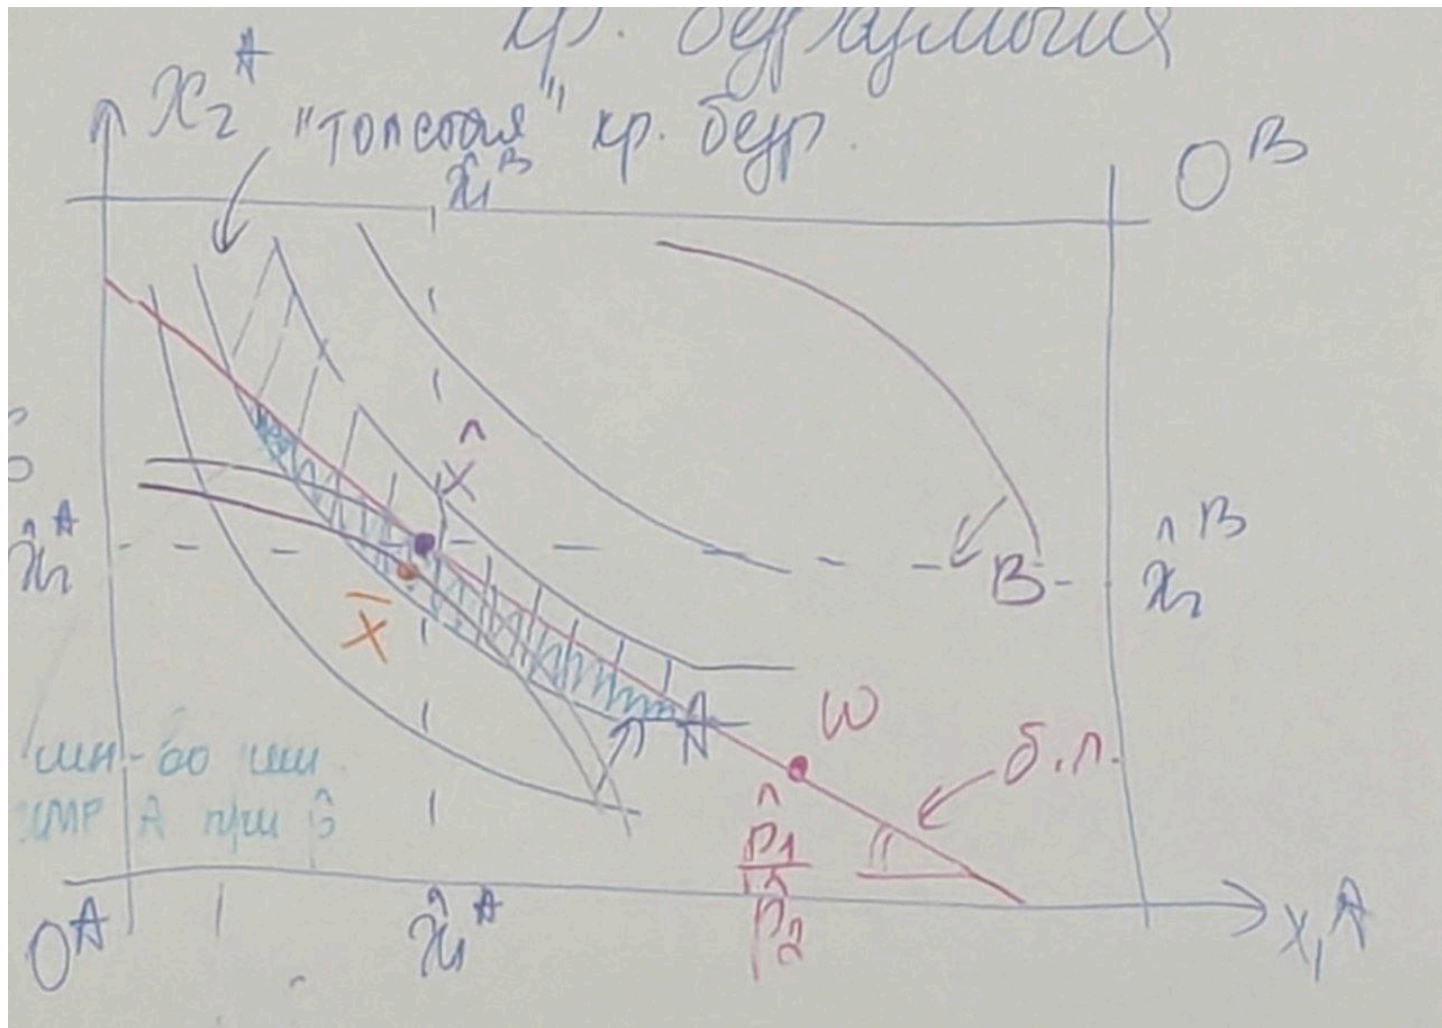 кр. безразличия
x₂ᴬ
"толстая" кр. безр.
x̂₁ᴮ
Oᴮ
x̂
x̂₂ᴬ
x̂₂ᴮ
B
x̄
A
ω
б.л.
мн-во
A при p̂
p̂₁
p̂₂
Oᴬ
x̂₁ᴬ
x₁ᴬ